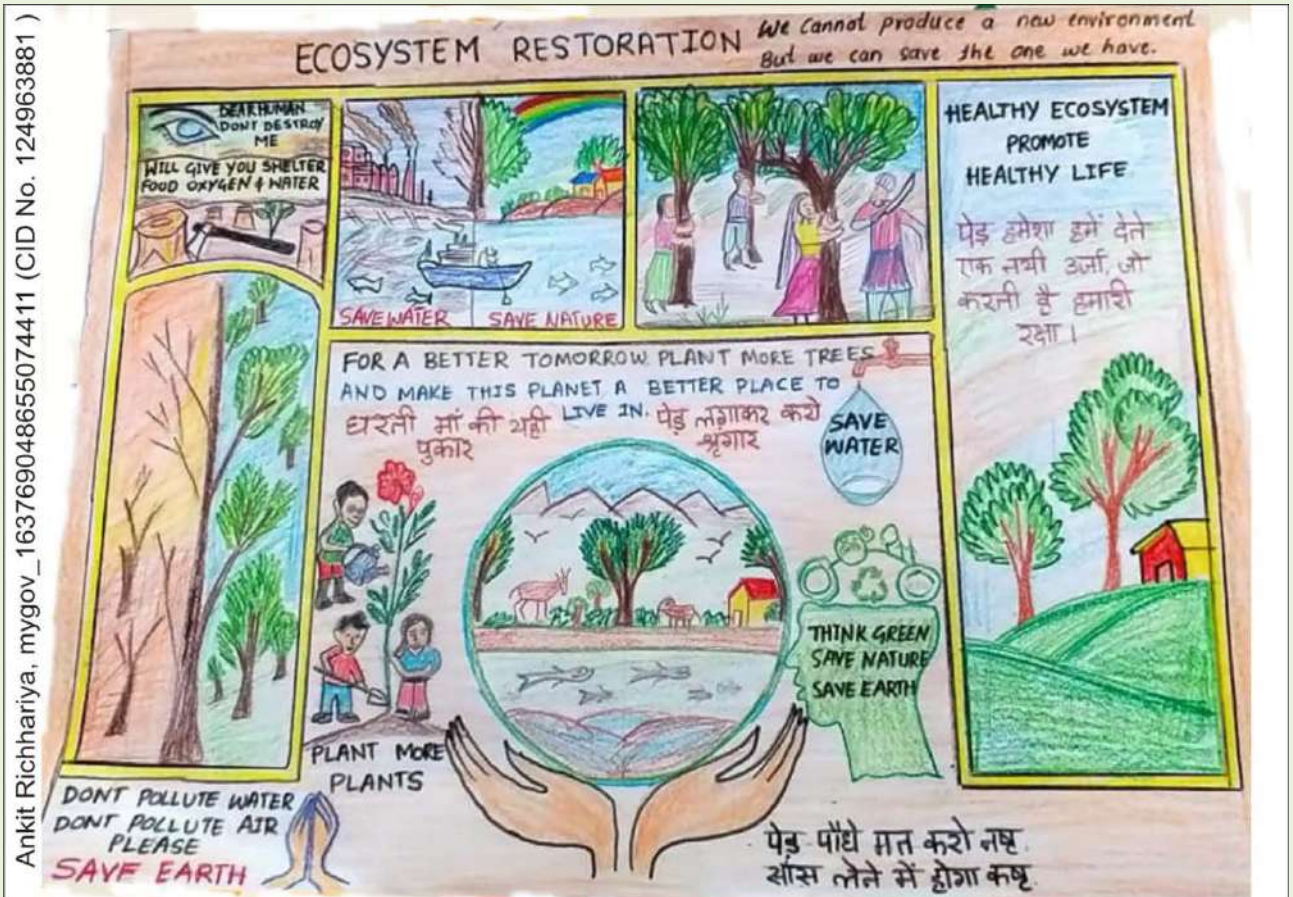 Ankit Richhariya, mygov_163769048655074411 (CID No. 124963881 )
ECOSYSTEM RESTORATION
We Cannot produce a new environment
But we can save the one we have.
DEAR HUMAN
DONT DESTROY
ME
WILL GIVE YOU SHELTER
FOOD OXYGEN & WATER
SAVE WATER
SAVE NATURE
HEALTHY ECOSYSTEM
PROMOTE
HEALTHY LIFE
पेड़ हमेशा हमें देते
एक नयी उर्जा, जो
करती है हमारी
रक्षा।
FOR A BETTER TOMORROW PLANT MORE TREES
AND MAKE THIS PLANET A BETTER PLACE TO
LIVE IN.
धरती मां की यही
पुकार
पेड़ लगाकर करो
श्रृगार
SAVE
WATER
THINK GREEN
SAVE NATURE
SAVE EARTH
PLANT MORE
PLANTS
DONT POLLUTE WATER
DONT POLLUTE AIR
PLEASE
SAVE EARTH
पेड़ पौधे मत करो नष्ट
साँस लेने में होगा कष्ट